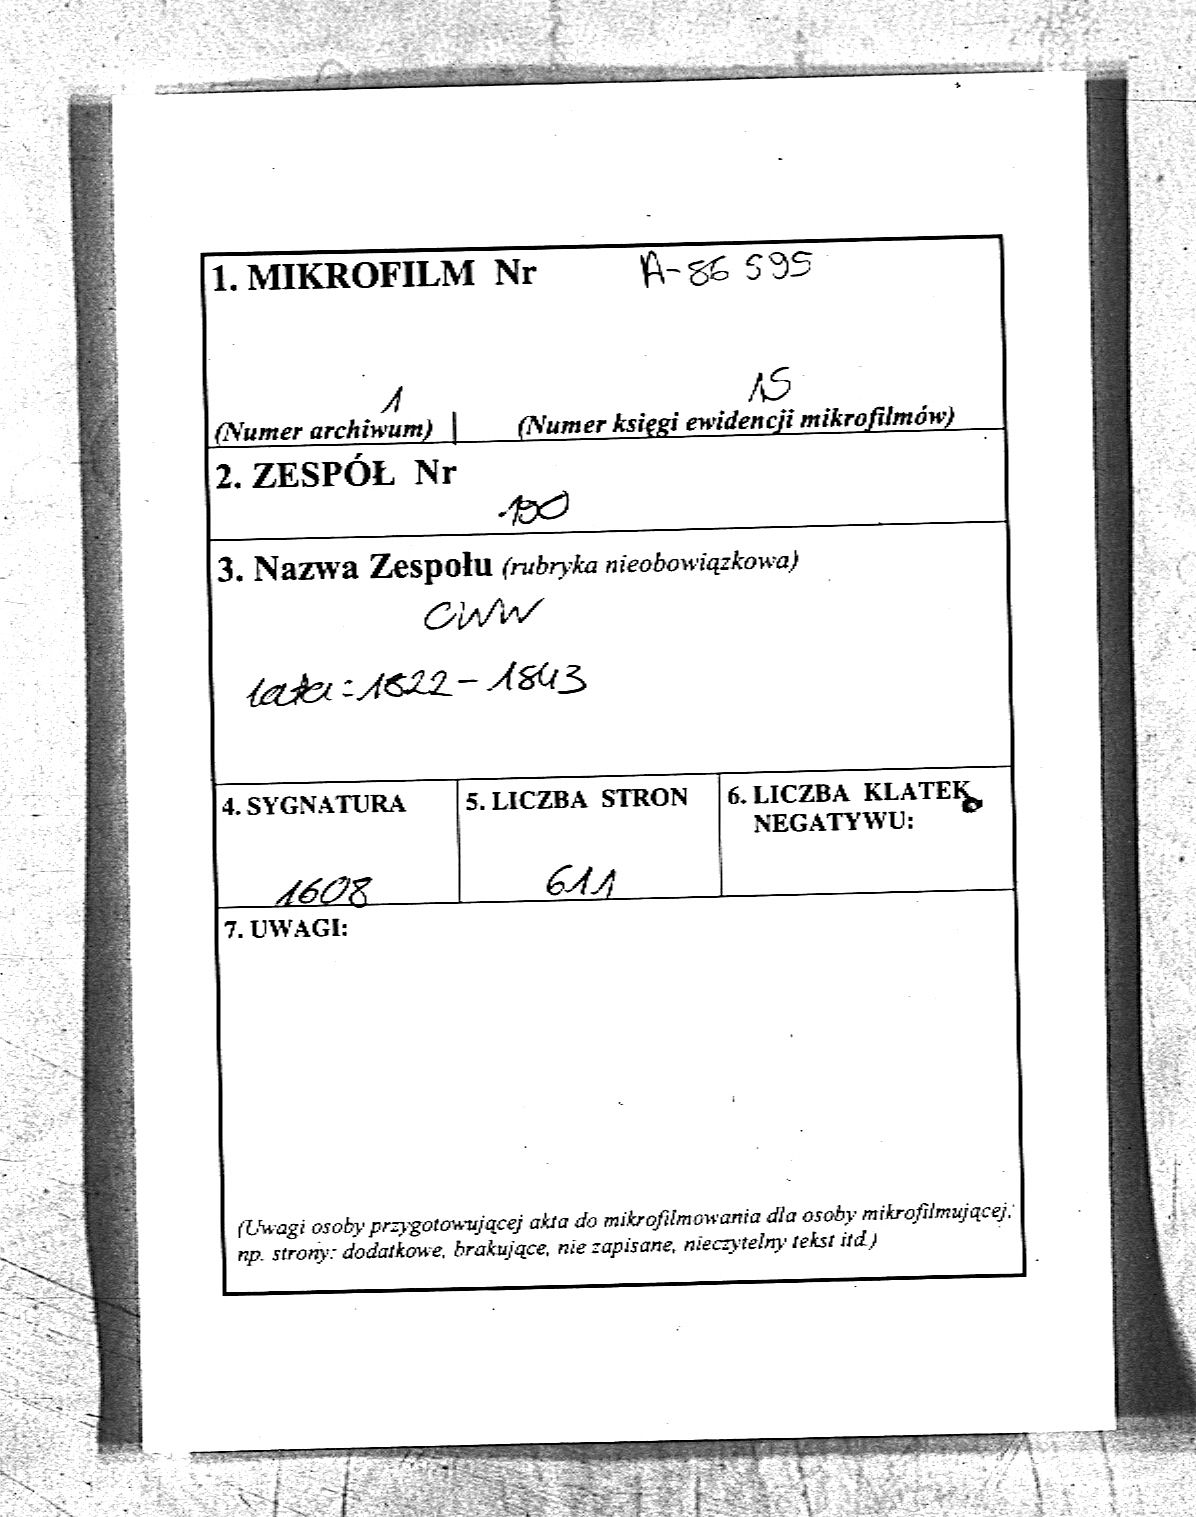 1. MIKROFILM Nr A-86 595
1 15
(Numer archiwum) (Numer księgi ewidencji mikrofilmów)
2. ZESPÓŁ Nr
190
3. Nazwa Zespołu (rubryka nieobowiązkowa)
CWW
lata: 1822 - 1843
4. SYGNATURA 5. LICZBA STRON 6. LICZBA KLATEK
NEGATYWU:
1608 611
7. UWAGI:
(Uwagi osoby przygotowującej akta do mikrofilmowania dla osoby mikrofilmującej,
np. strony: dodatkowe, brakujące, nie zapisane, nieczytelny tekst itd.)